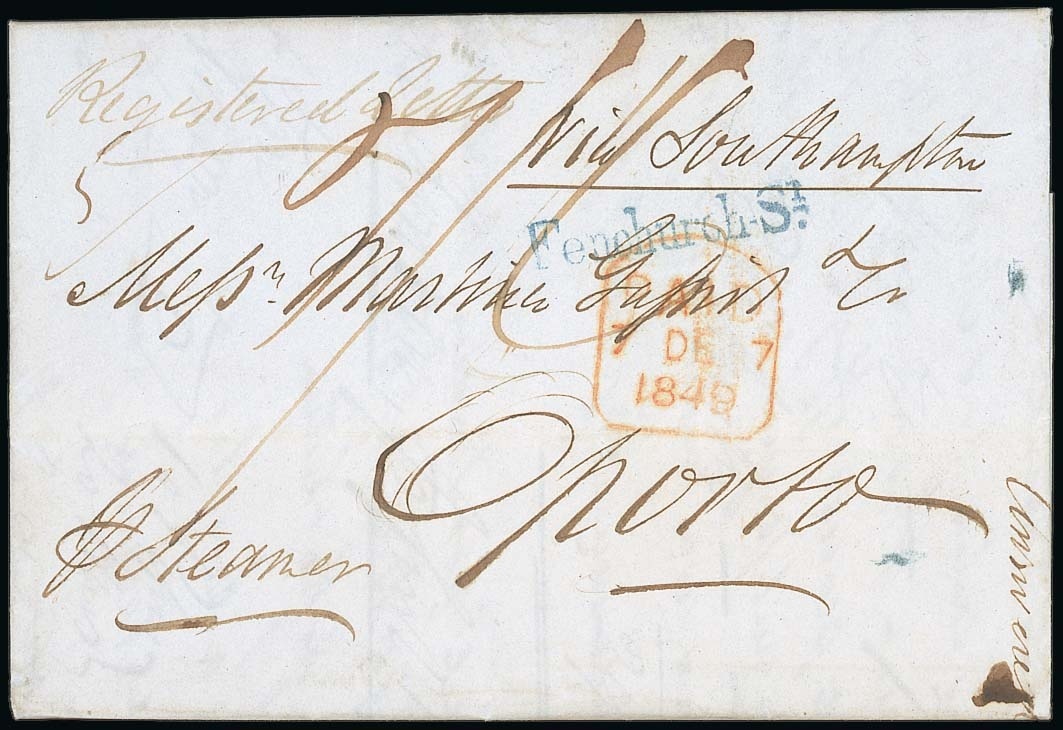 Registered Letter
Via Southampton
5
Fenchurch-St.
Messrs Martinez Gassiot & Co
PAID
7 DE 7
1849
Oporto
p Steamer